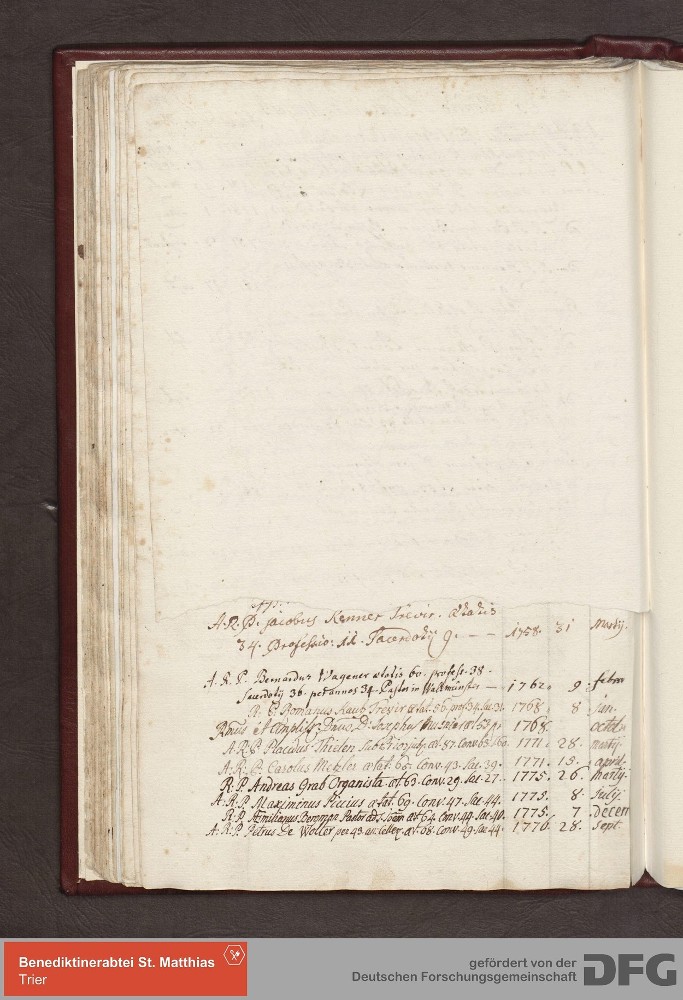 A. R. P. Jacobus Kenner Trevir. Ætatis
34. Professio: 12. Sacerdotij 9. — — 1758. 31 Martij.
A. R. P. Bernardus Wagener ætatis 60. profess. 38.
Sacerdotij 36. per annos 34. Pastor in — 1762. 9. febr
A. P. Romanus Raub Trevir ætat. 56. prof. 34. Sac. 31. 1768. 8 jan.
et D. D. Josephus 1768. octob
A. R. P. Placidus Thielen æt. 87. Conv. 65. 1771. 28. martij
A. R. P. Carolus Metzler ætat. 63. Conv. 43. Sac. 39. 1771. 15. april.
R. P. Andreas Grab Organista æt. 63. Conv. 29. Sac. 27. 1775. 26. Martij.
A. R. P. Maximinus Piccius ætat. 69. Conv. 47. Sac. 44. 1775. 8. Julij
R. P. Æmilianus Pastor æt. 64. Conv. 44. Sac. 40. 1775. 7 decem
A. R. P. Petrus De Woller per 43. an. æt. 68. Conv. 49. Sac. 44. 1776. 28. Sept.
Benediktinerabtei St. Matthias
Trier
gefördert von der
Deutschen Forschungsgemeinschaft
DFG